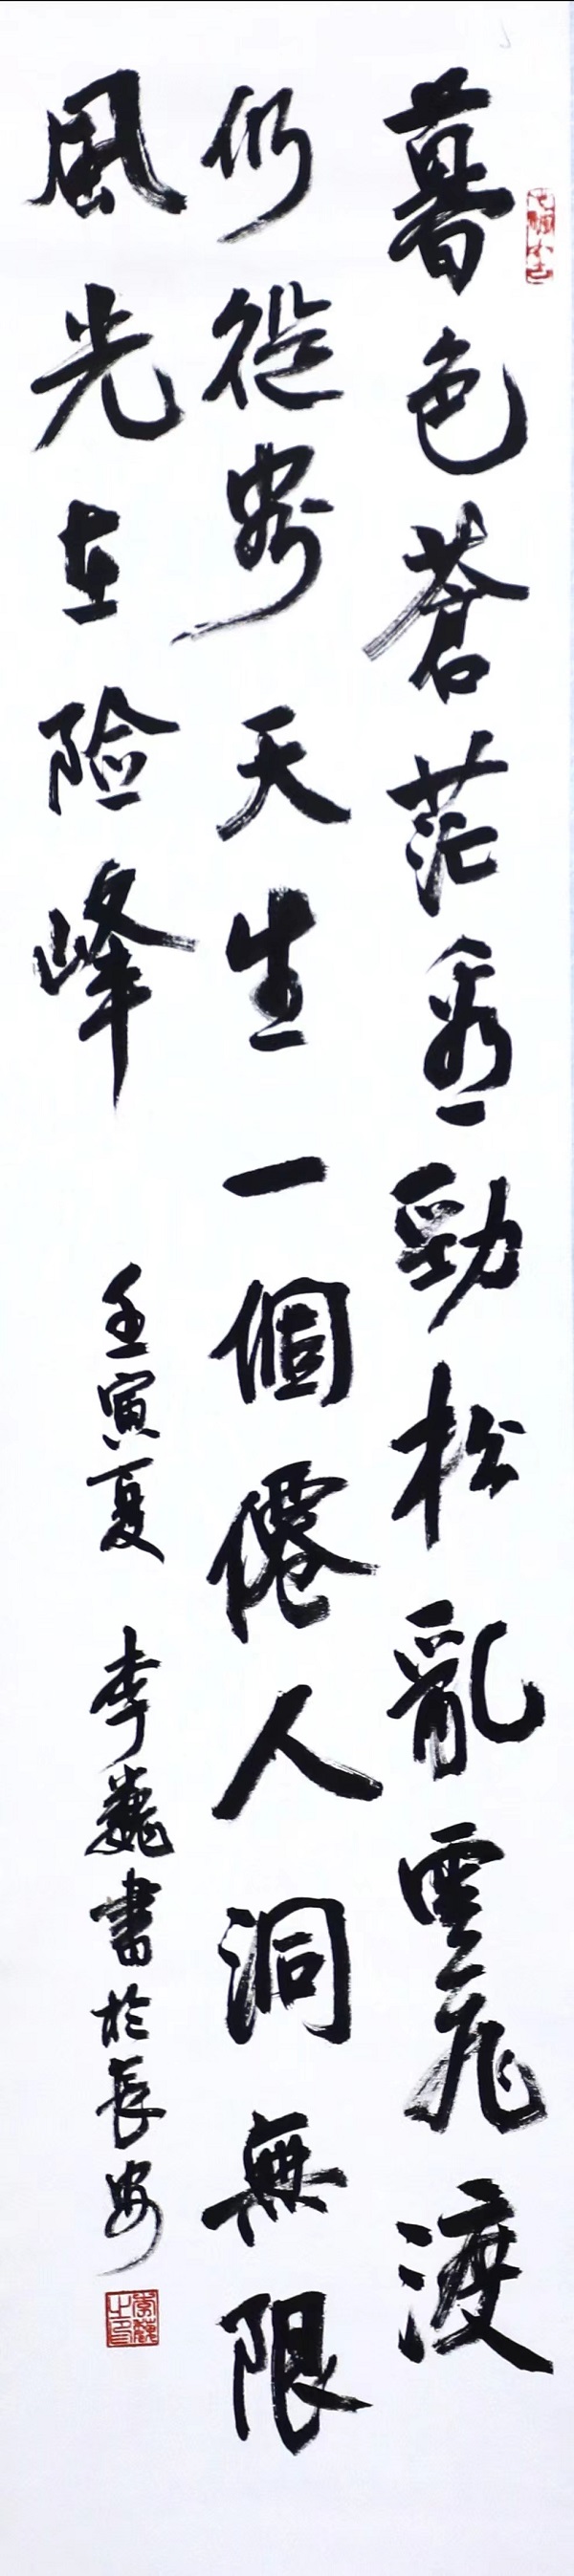 暮色蒼茫看勁松亂雲飛渡
仍從容天生一個僊人洞無限
風光在險峰
壬寅夏 李巍書於長安